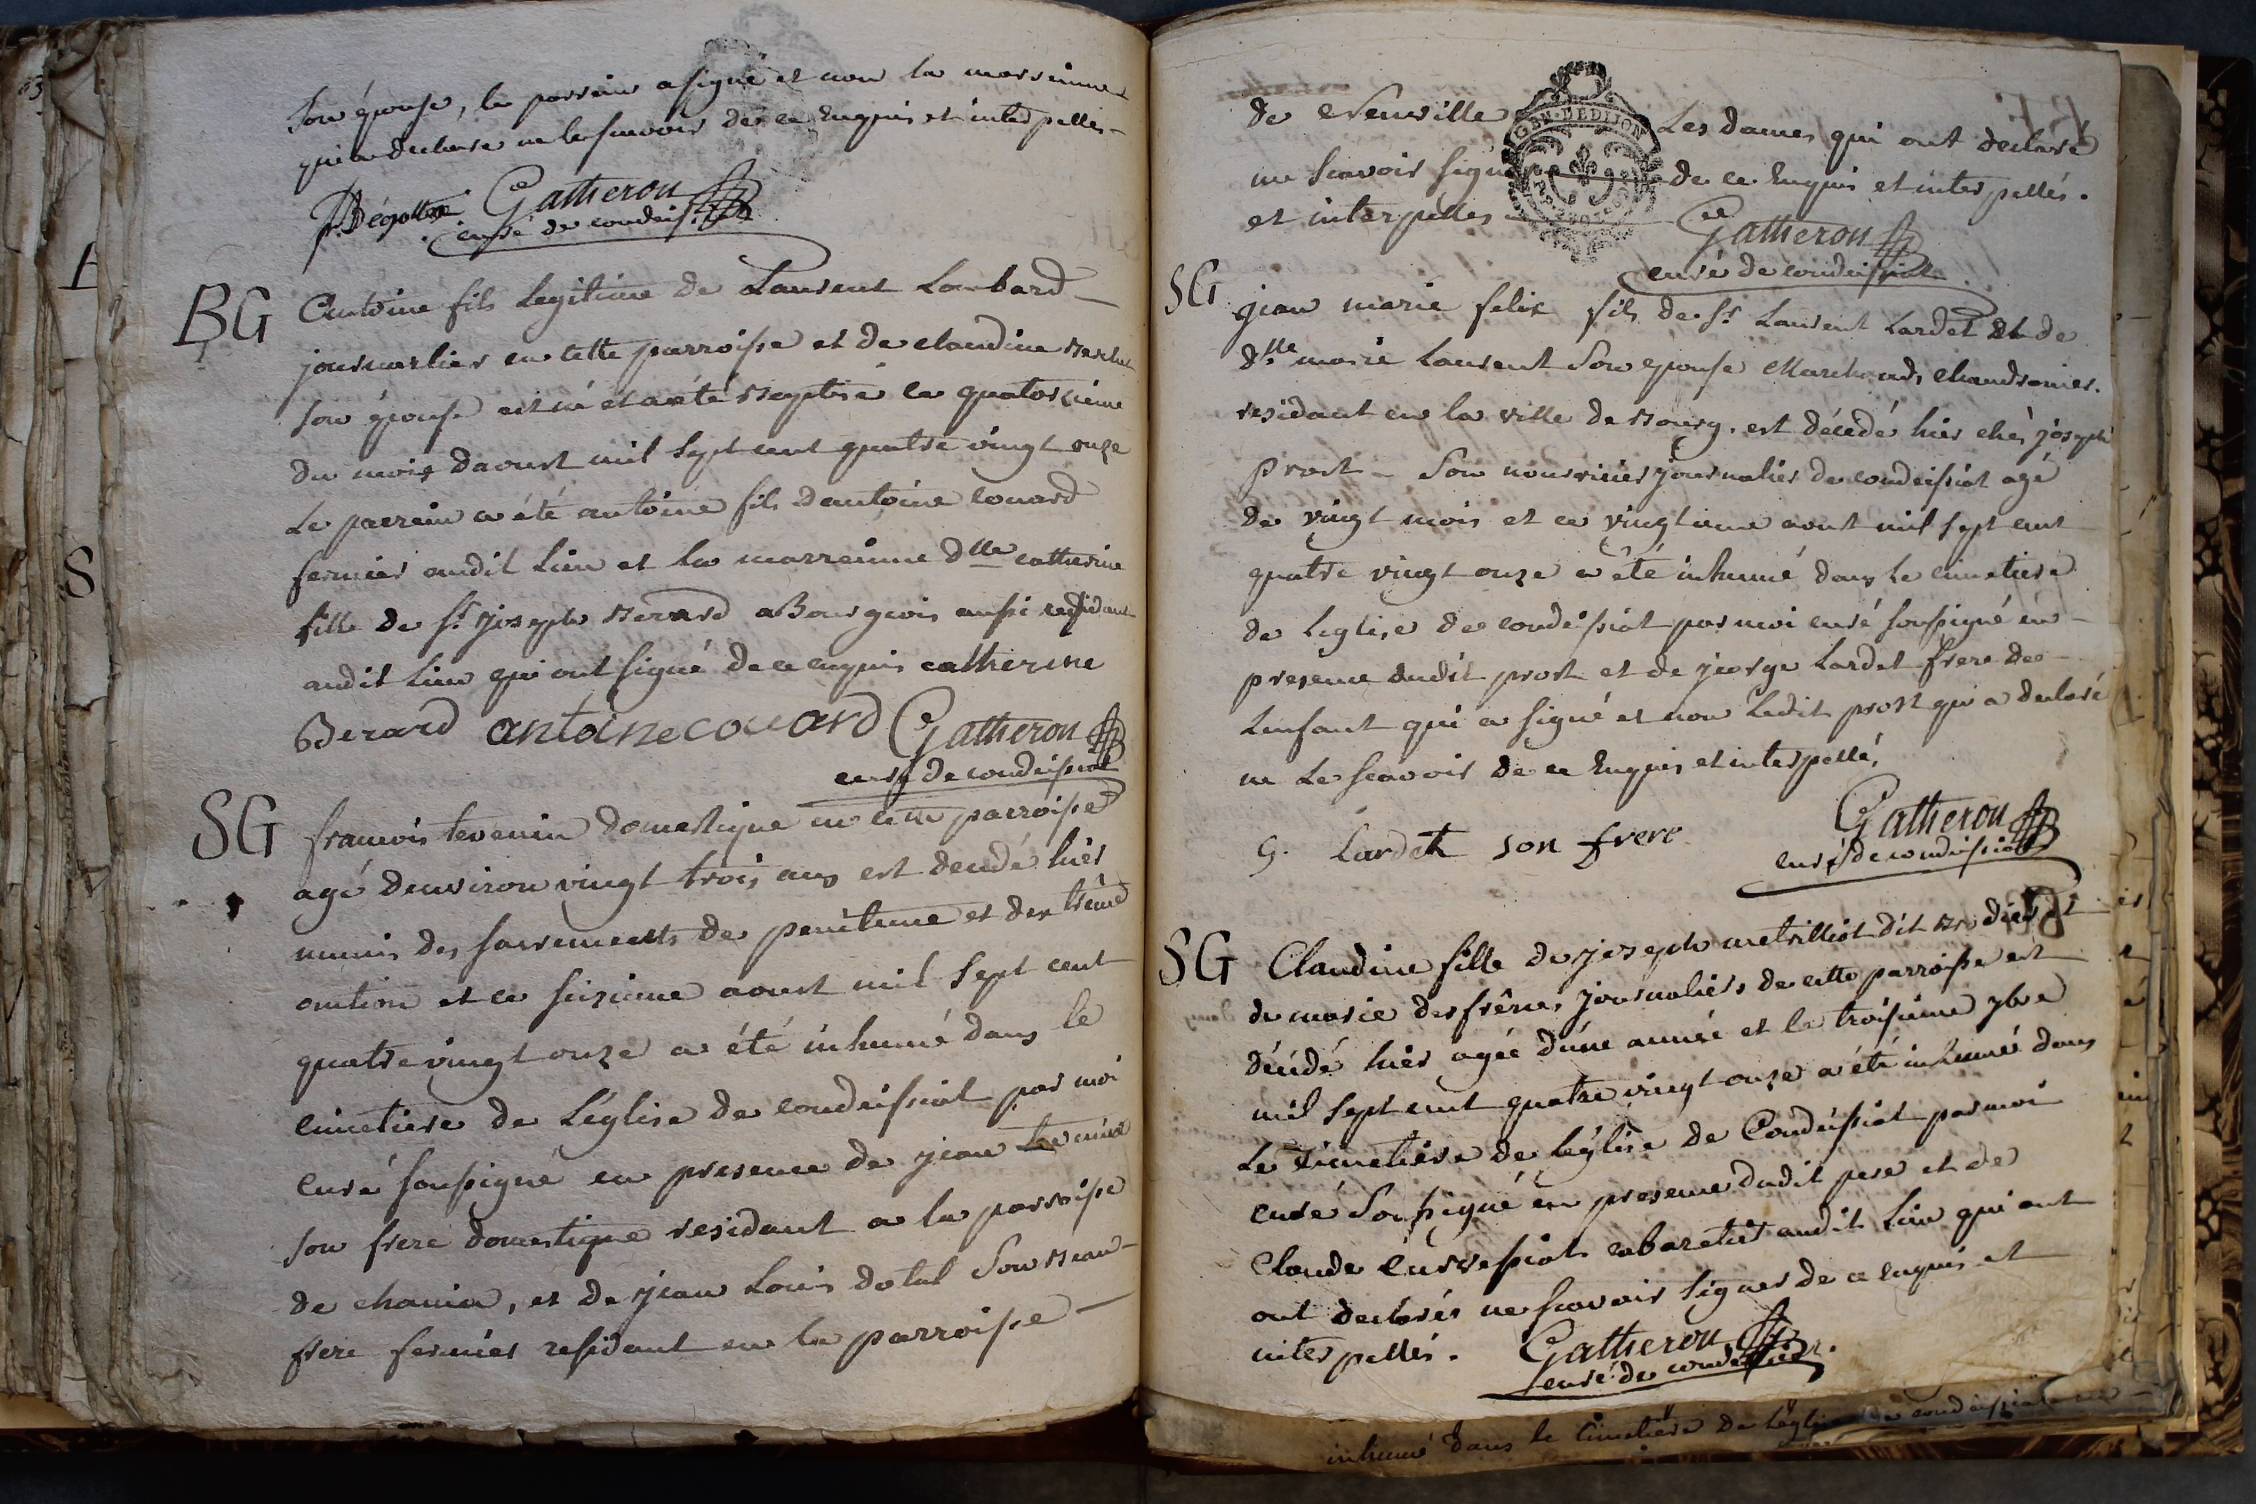 son épouse, le parrain a signé et non la marreinne
qui a declaré ne le sçavoir de ce enquis et interpellés
Gatheron
curé de condeissiat
BG Antoine fils legitime de Laurent Lombard
journaillier en cette parroisse et de claudine
son épouse est né et a été baptisé le quatorzieme
du mois daoust mil sept cent quatre vingt onze
Le parrein a été antoine fils dantoine couard
fermier audit Lieu et la marreinne dlle catherine
fille de sr joseph Berard Bourgeois aussi residant
audit Lieu qui ont signé de ce enquis catherine
Berard antoine couard Gatheron
curé de condeissiat
SG francois tevenin domestique en cette parroisse
agé denviron vingt trois ans est decedé hier
munis des sacremeents de penitence et dextrême
onction et ce seizieme aoust mil sept cent
quatre vingt onze a été inhumé dans le
cimetiere de L'église de condeissiat par moi
curé soussigné en presence de jean
son frere domestique residant a la parroisse
de , et de jean Louis dotal son beau
frere fermier residant en la parroisse
de Neuville Les dames qui ont declaré
ne scavoir signer de ce enquis et interpellés.
et interpelles
GEN. DE DIJON
Gatheron
curé de condeissiat
SG jean marie felix fils de sr Laurent Lardet et de
dlle marie Laurent son epouse Marchands chaudronier
residant en la ville de Bourg, est décedé hier chès joseph
prost son nourricier journalier de condeissiat agé
de vingt mois et ce vingtieme aout mil sept cent
quatre vingt onze a été inhumé dans le cimetiere
de leglise de condeissiat par moi curé soussigné en
presence dudit prost et de jeorge Lardet frere de
Lenfant qui a signé et non Ledit prost qui a declaré
ne Le scavoir de ce enquis et interpellé,
G. Lardet son frere Gatheron
curé de condeissiat
SG Claudine fille de joseph metrilliot dit et
de marie desfrênes journaliers de cette parroisse est
décédé hier agée dune année et le troisieme 7bre
mil sept cent quatre vingt onze a été inhumé dans
Le cimetiere de leglise de Condeissiat par moi
curé Soussigné en presence dudit pere et de
Claude cabaretier audit Lieu qui ont
ont declarés ne scavoir signer de ce enquis et
interpellés. Gatheron
curé de condeissiat
inhumé dans le Cimetiere de Leglise de condeissiat